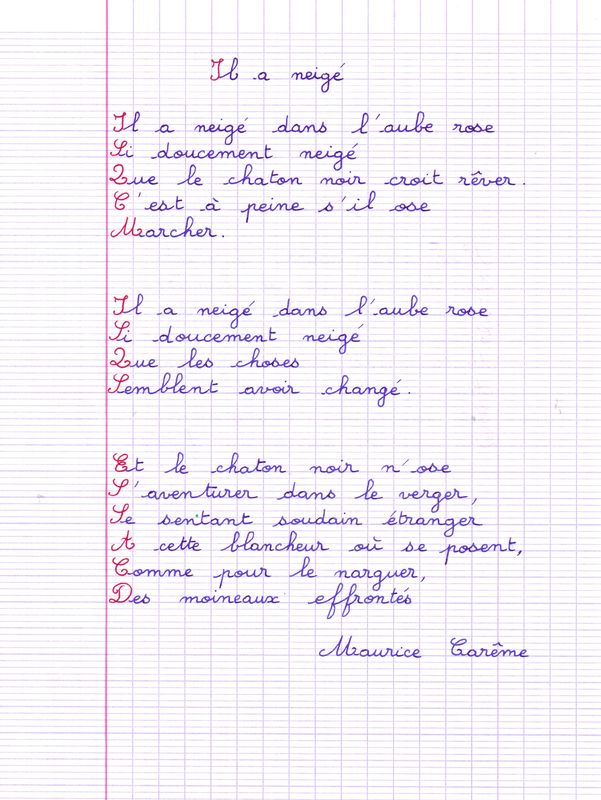 Il a neigé
Il a neigé dans l'aube rose
Si doucement neigé
Que le chaton noir croit rêver.
C'est à peine s'il ose
Marcher.
Il a neigé dans l'aube rose
Si doucement neigé
Que les choses
Semblent avoir changé.
Et le chaton noir n'ose
S'aventurer dans le verger,
Se sentant soudain étranger
A cette blancheur où se posent,
Comme pour le narguer,
Des moineaux effrontés
Maurice Carême